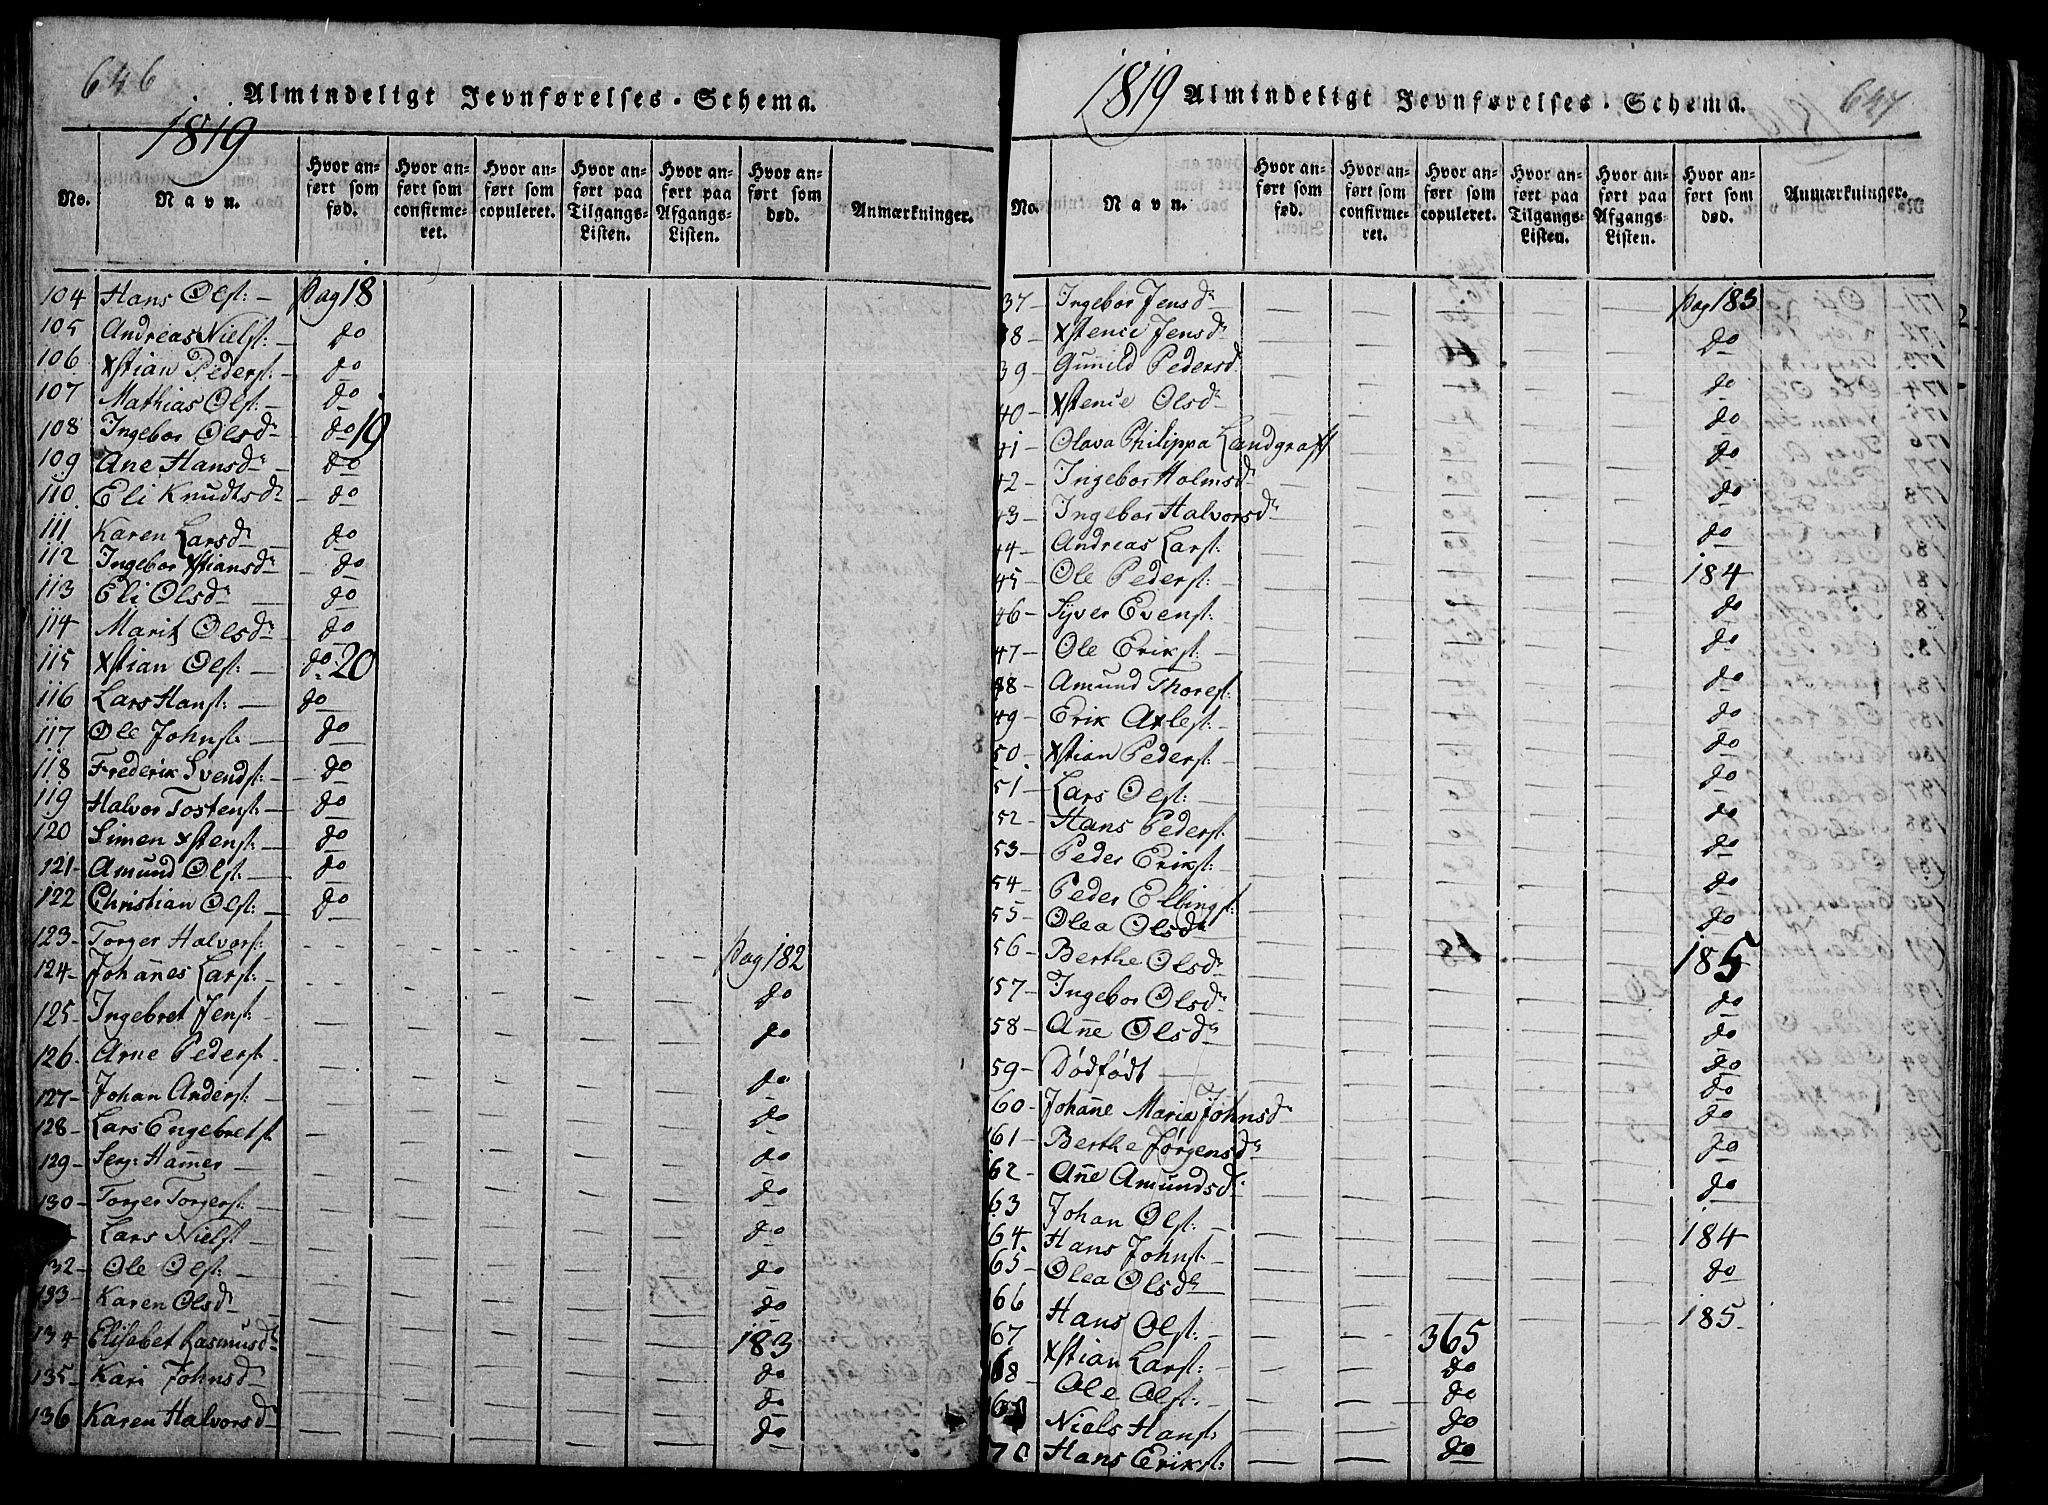 646
Almindeligt Jevnførelses-Schema.
1819
No.
Navn.
Hvor anført som fød.
Hvor anført som confirmeret.
Hvor anført som copuleret.
Hvor anført paa Tilgangs-Listen.
Hvor anført paa Afgangs-Listen.
Hvor anført som død.
Anmærkninger.
104 Hans Olst: Pag 18
105 Andreas Nielst: do
106 Xstian Pederst: do
107 Mathias Olst: do
108 Ingebor Olsdr do 19
109 Ane Hansdr do
110 Eli Knudtsdr do
111 Karen Larsdr do
112 Ingebor Xstiansdr do
113 Eli Olsdr do
114 Marit Olsdr do
115 Xstian Olst: do 20
116 Lars Hanst: do
117 Ole Johnst. do
118 Frederik Svendst: do
119 Halvor Tostenst: do
120 Simen Xstenst: do
121 Amund Olst: do
122 Christian Olst: do
123 Torger Halvorst: Pag 182
124 Johañes Larst: do
125 Ingebret Jenst: do
126 Arne Pederst. do
127 Johan Anderst: do
128 Lars Engebretst do
129 Serj: Hamer do
130 Torger Torgerst: do
Lars Nielst do
132 Ole Olst: do
133 Karen Olsdr do
134 Elisabet Rasmusdr 183
135 Kari Johnsd do
136 Karen Halvorsd do
1819
Almindeligt Jevnførelses-Schema.
647
No.
Navn.
Hvor anført som fød.
Hvor anført som confirmeret.
Hvor anført som copuleret.
Hvor anført paa Tilgangs-Listen.
Hvor anført paa Afgangs-Listen.
Hvor anført som død.
Anmærkninger.
37 Ingebor Jensdr Pag 183
38 Xstence Jensdr do
39 Guñild Pedersd do
40 Xstence Olsdr do
41 Olava Philippa Landgraff do
42 Ingebor Holmsdr do
43 Ingebor Halvorsdr do
44 Andreas Larst:
45 Ole Pederst: 184
46 Syver Evenst: do
47 Ole Erikst: do
48 Amund Thorest: do
49 Erik Axlest: do
50 Xstian Pederst: do
51 Lars Olst: do
52 Hans Pederst: do
53 Peder Erikst: do
54 Peder Elbingst: do
55 Olea Olsdr do
56 Berthe Olsdr 185
157 Ingebor Olsdr do
58 Añe Olsdr do
59 Dødfødt do
60 Johañe Maria Johnsdr do
161 Berthe Jørgensdr do
62 Añe Amundsdr do
63 Johan Olst: 184
64 Hans Johnst: do
65 Olea Olsdr
166 Hans Olst: 185
167 Xstian Larst: 365
168 Ole Olst: do
169 Niels Hanst: do
70 Hans Erikst: do